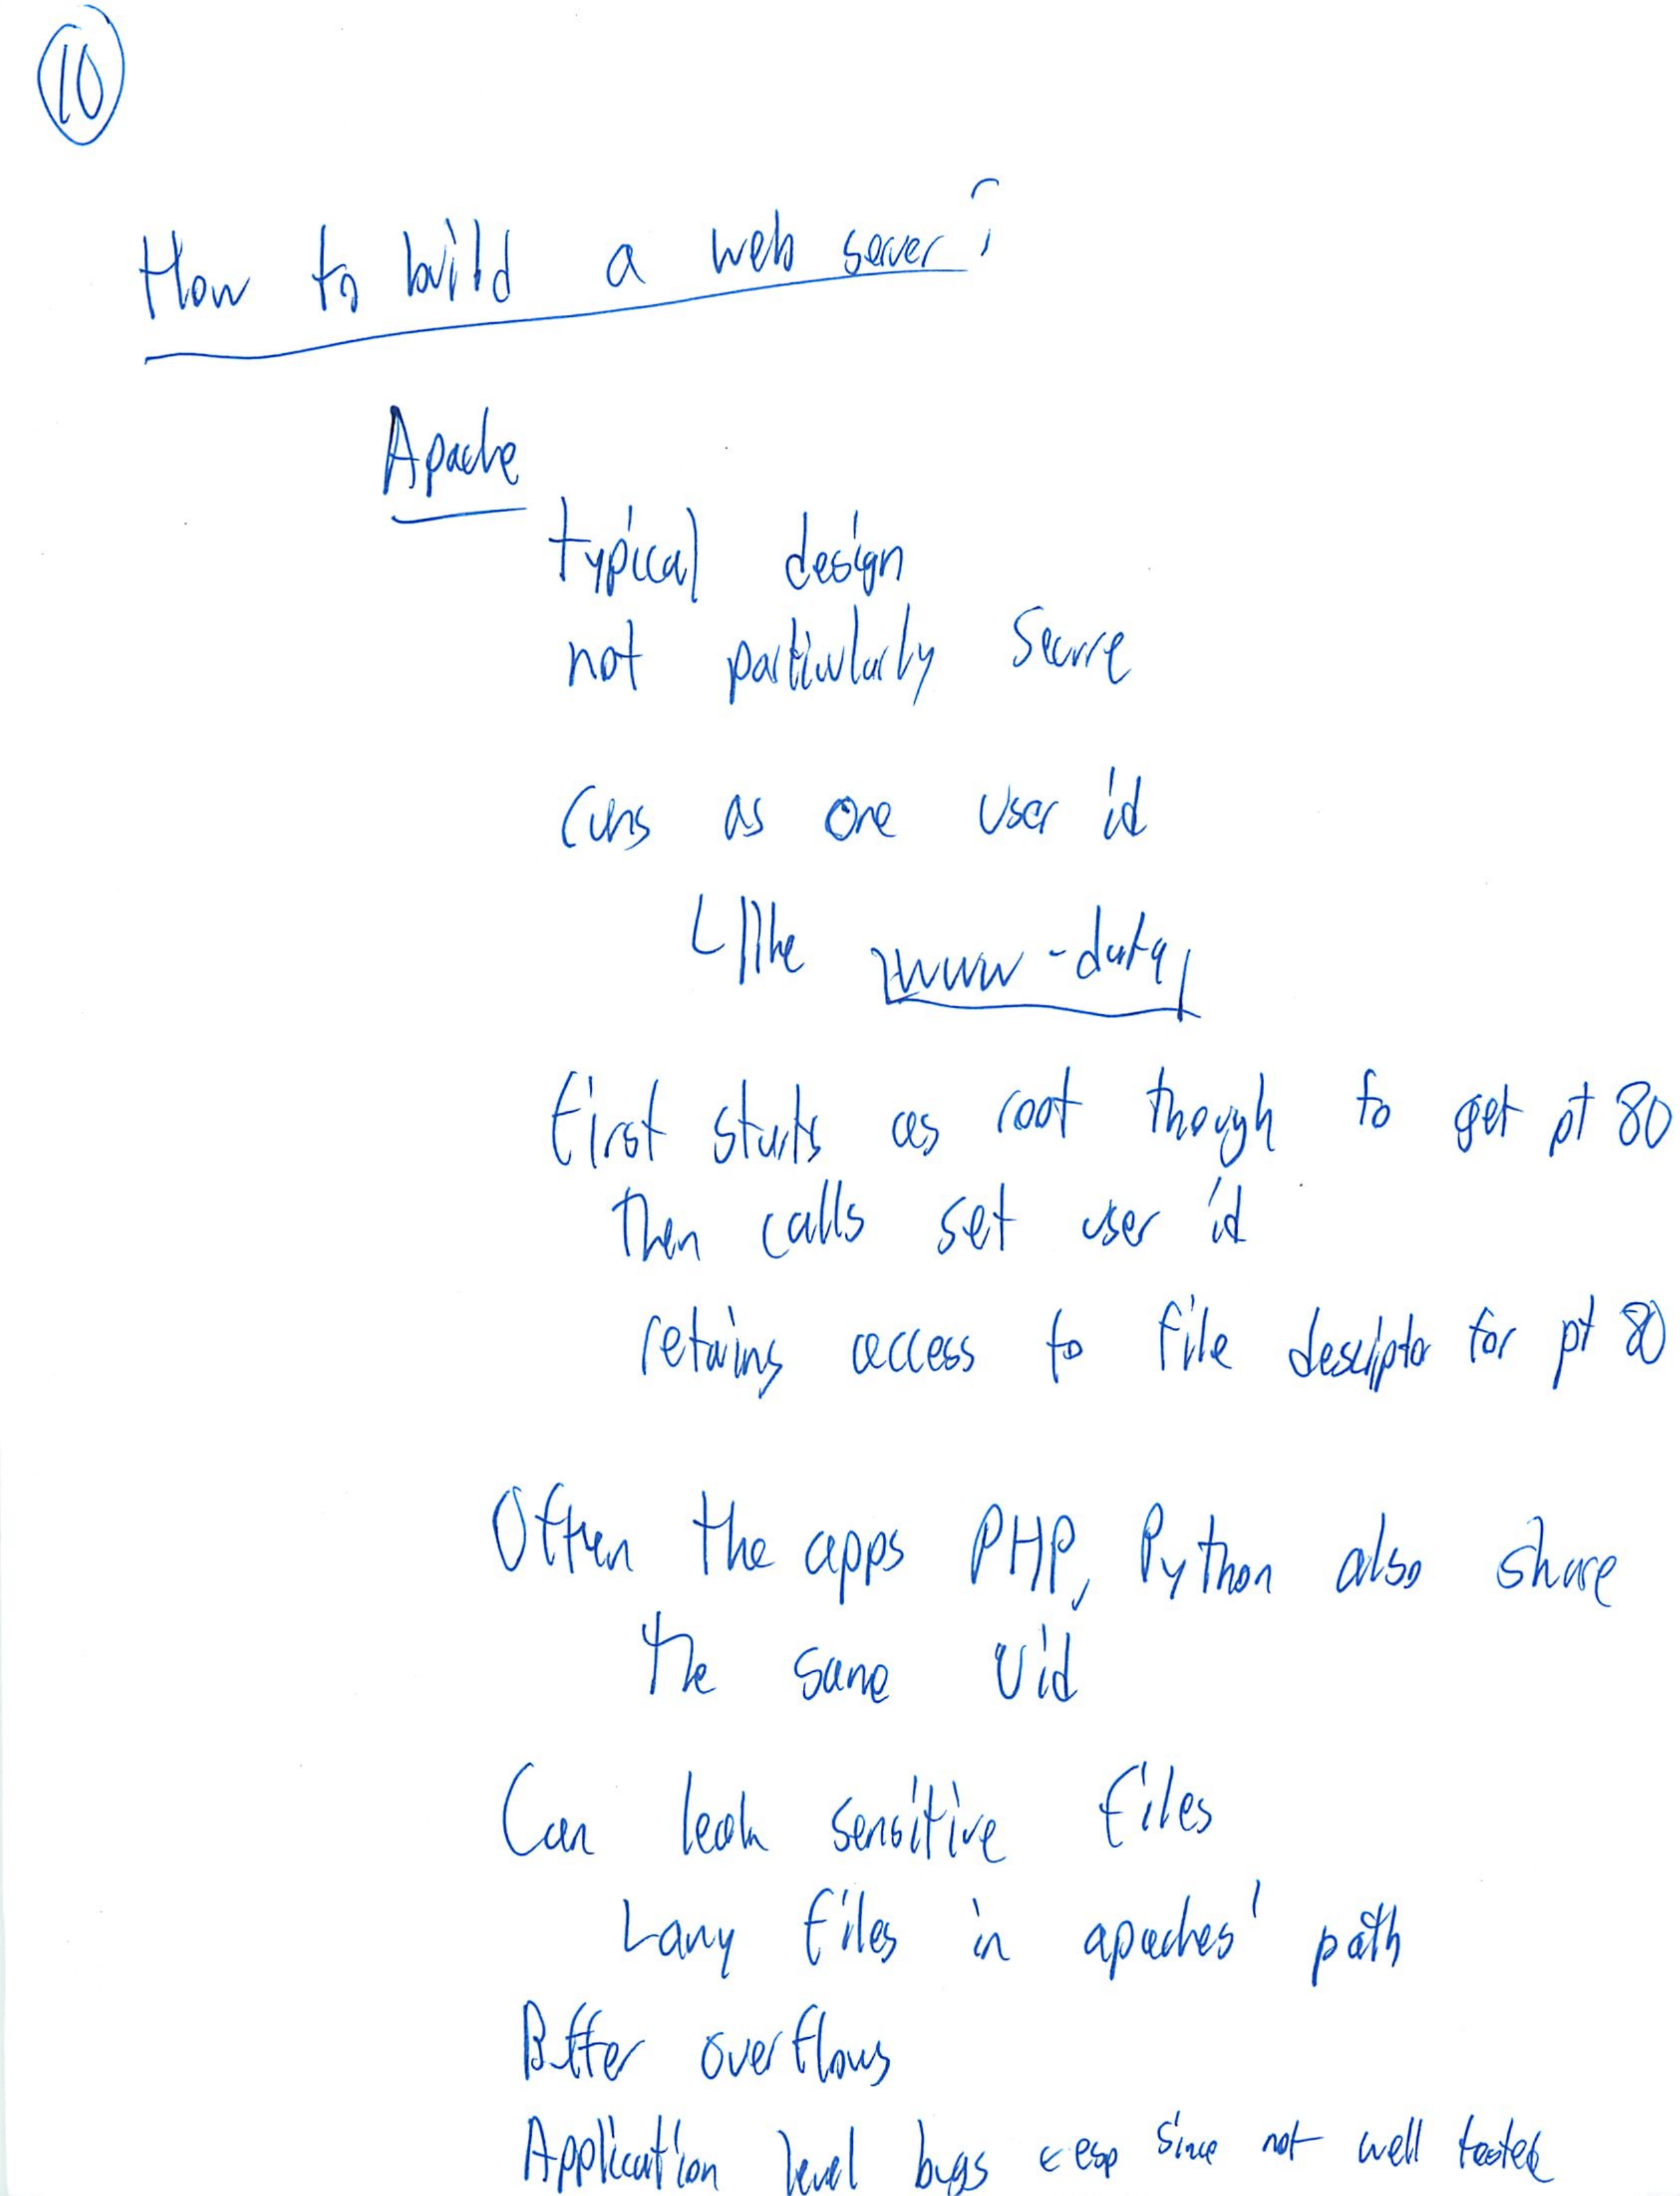 10
How to build a web server?
Apache
typical design
not particularly secure
runs as one user id
like www-data
First starts as root though to get pt 80
Then calls set user id
retains access to file descriptor for pt 80
Often the apps PHP, Python also share
the same Uid
Can leak sensitive files
any files in apaches' path
Buffer overflows
Application level bugs ← esp since not well tested